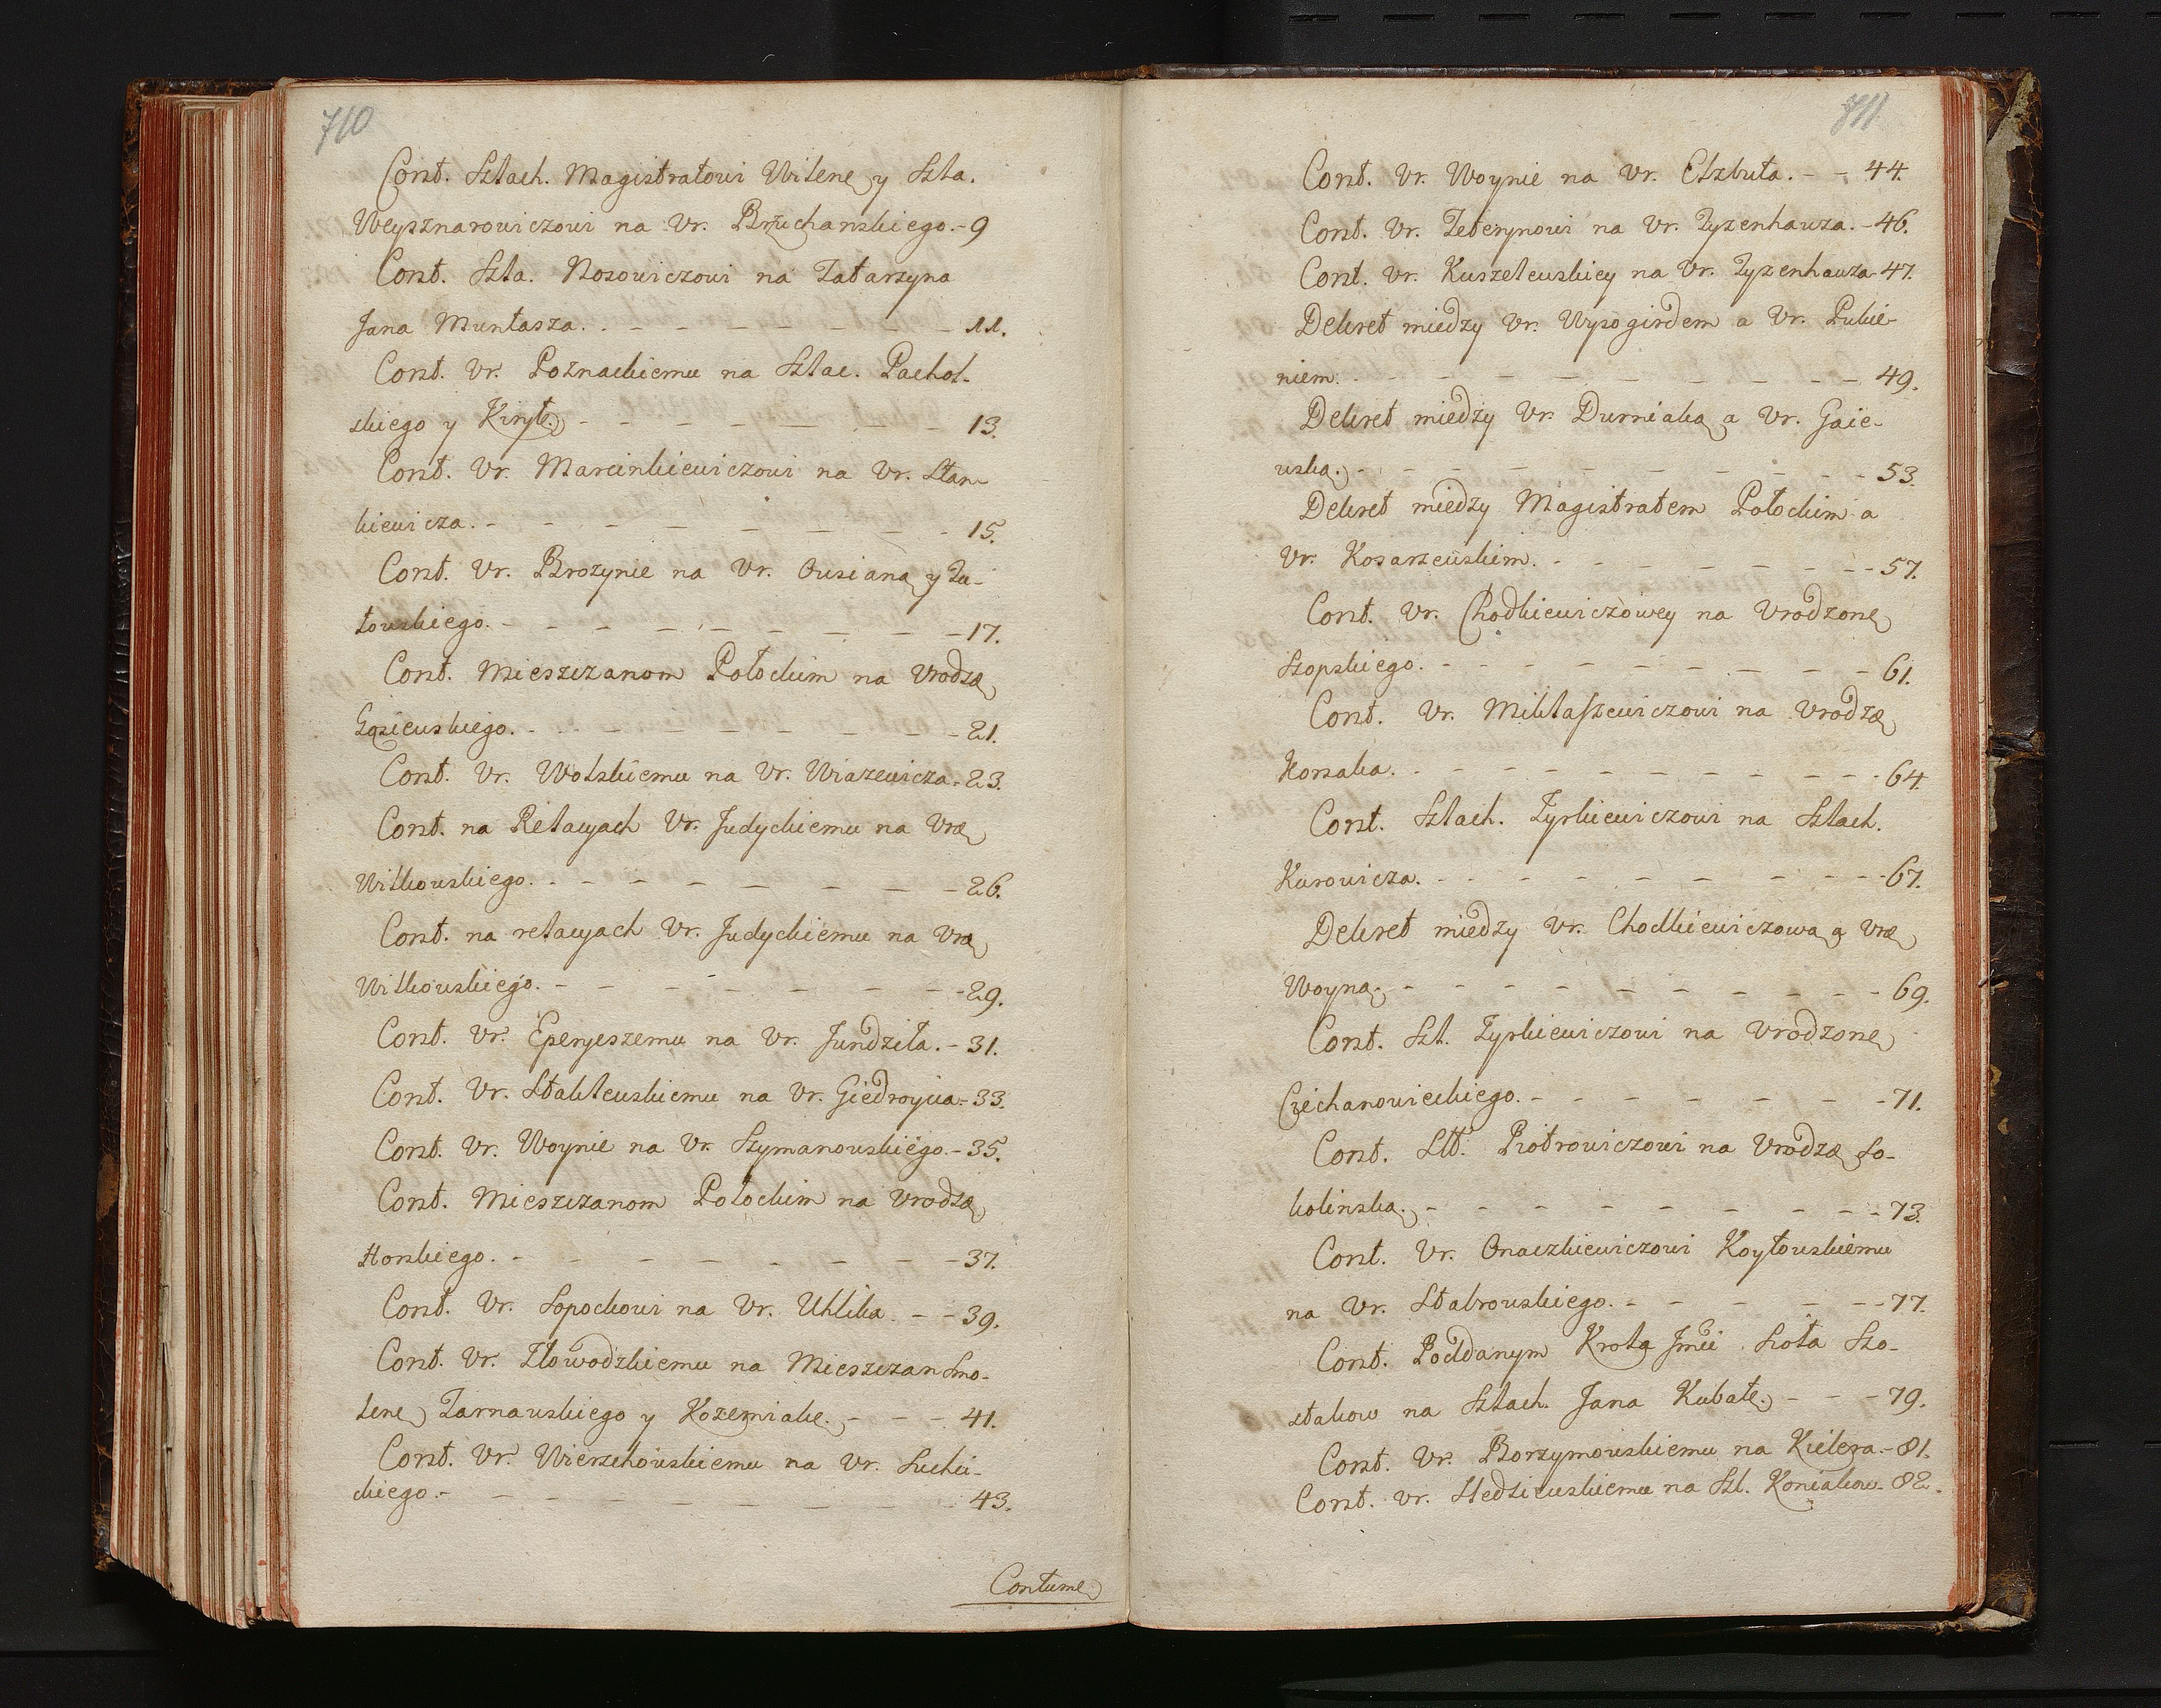 710
Cont. Szlach. Magistratowi Wilene y Szla.
Weysznarowiczowi na Vr. Bruchanskiego.-9
Cont. Szla. Nosowiczowi na Tatarzyna
Jana Muntasza. - - - - - - - 11.
Cont. Vr. Poznackiemu na Szlac. Pachol-
skiego y Kiryłę. - - - - - - - 13.
Cont. Vr. Marcinkiewiczowi na Vr. Stan-
kiewicza. - - - - - - - - 15.
Cont. Vr. Brozynie na Vr. Owsianą y Zu-
towskiego. - - - - - - - - 17.
Cont. Mieszczanom Połockim na Vrodzo
Gąsiewskiego. - - - - - - - - 21.
Cont. Vr. Wolskiemu na Vr. Wiazewicza.-23.
Cont. na Relacyach Vr. Judyckiemu na Vro
Witkowskiego. - - - - - - - - 26.
Cont. na relacyach Vr. Judyckiemu na Vro
Witkowskiego. - - - - - - - - 29.
Cont. Vr. Eperyeszemu na Vr. Jundziła. - 31.
Cont. Vr. Stablewskiemu na Vr. Giedroycia.-33.
Cont. Vr. Woynie na Vr. Szymanowskiego.-35.
Cont. Mieszczanom Połockim na Vrodzo
Horskiego. - - - - - - - - 37.
Cont. Vr. Sopockowi na Vr. Uhlika. - - 39.
Cont. Vr. Złowodzkiemu na Mieszczan Smo-
lene Tarnawskiego y Kozemiakę. - - - 41.
Cont. Vr. Wierzchowskiemu na Vr. Suchci-
ckiego.- - - - - - - - - - 43.
Contume
711
Cont. Vr. Woynie na Vr. Elzbuta. - - 44.
Cont. Vr. Zeterynowi na Vr. Tyzenhauza. - 46.
Cont. Vr. Kuszelewskiey na Vr. Tyzenhauza-47.
Dekret miedzy Vr. Wysogirdem a Vr. Pukie-
niem. - - - - - - - - - - 49.
Dekret miedzy Vr. Durniaką a Vr. Gaie-
wską. - - - - - - - - - 53.
Dekret miedzy Magistratem Połockim a
Vr. Kosarzewskim. - - - - - - - - 57.
Cont. Vr. Chodkiewiczowey na Vrodzone
Szopskiego. - - - - - - - - - 61.
Cont. Vr. Mikłaszewiczowi na Vrodzo
Korsaka. - - - - - - - - - - 64.
Cont. Szlach. Zyrkiewiczowi na Szlach.
Kurowicza. - - - - - - - - - 67.
Dekret miedzy Vr. Chodkiewiczową a Vro
Woyną. - - - - - - - - - - 69.
Cont. Szl. Zyrkiewiczowi na Vrodzone
Czechanowieckiego. - - - - - - - - 71.
Cont. Szl. Piotrowiczowi na Vrodzo So-
kolinską. - - - - - - - - - 73.
Cont. Vr. Onaczkiewiczowi Koytowskiemu
na Vr. Stabrowskiego. - - - - - - 77.
Cont. Poddanym Krola Jmci Sioła Szo-
stakow na Szlach. Jana Kubałę. - - - 79.
Cont. Vr. Borzymowskiemu na Kielera.-81.
Cont. Vr. Sledziewskiemu na Szl. Koniakow-82.